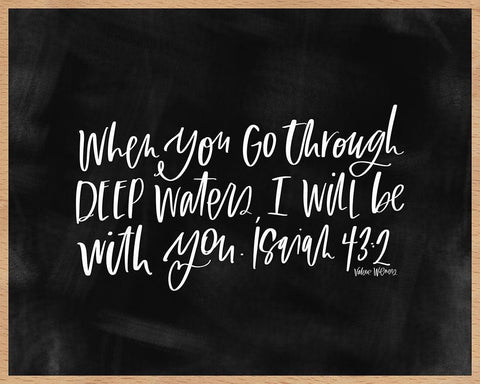 When you Go through
DEEP waters, I will be
with you. Isaiah 43:2